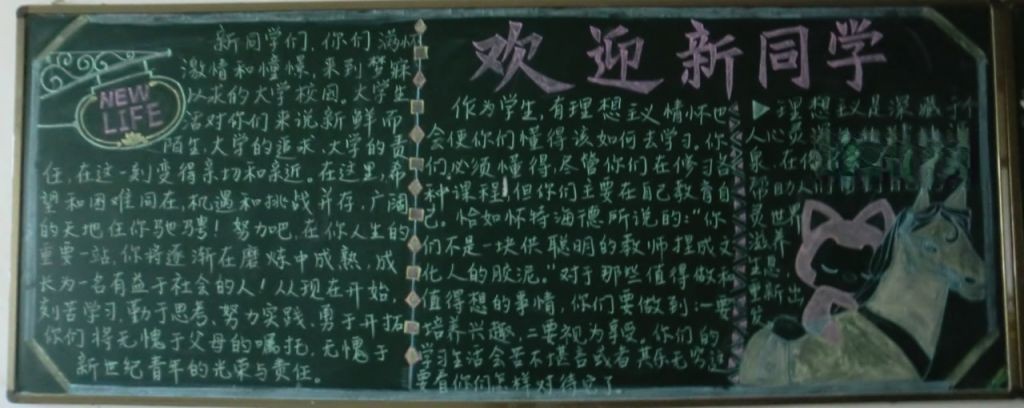 欢迎新同学
NEW
LIFE
新同学们，你们满怀
激情和憧憬，来到梦寐
以求的大学校园。大学生
活对你们来说新鲜而
陌生，大学的追求，大学的责
任，在这一刻变得亲切和亲近。在这里，希
望和困难同在，机遇和挑战并存，广阔
的天地任你驰骋！努力吧，在你人生的
重要一站，你将逐渐在磨炼中成熟，成
长为一名有益于社会的人！从现在开始，
刻苦学习，勤于思考，努力实践，勇于开拓
你们将无愧于父母的嘱托，无愧于
新世纪青年的光荣与责任。
作为学生，有理想主义情怀吧
会使你们懂得该如何去学习。你
们必须懂得，尽管你们在修习各
种课程，但你们主要在自己教育自
己。恰如怀特海德所说的："你
们不是一块供聪明的教师捏成文
化人的胶泥。"对于那些值得做和
值得想的事情，你们要做到：一要
培养兴趣，二要视为享受。你们的
学习生活会苦不堪言或者其乐无穷，这
要看你们怎样对待它了。
▶理想主义是深藏于
人心
泉，在
帮助人们
灵世界
滋养
重新出